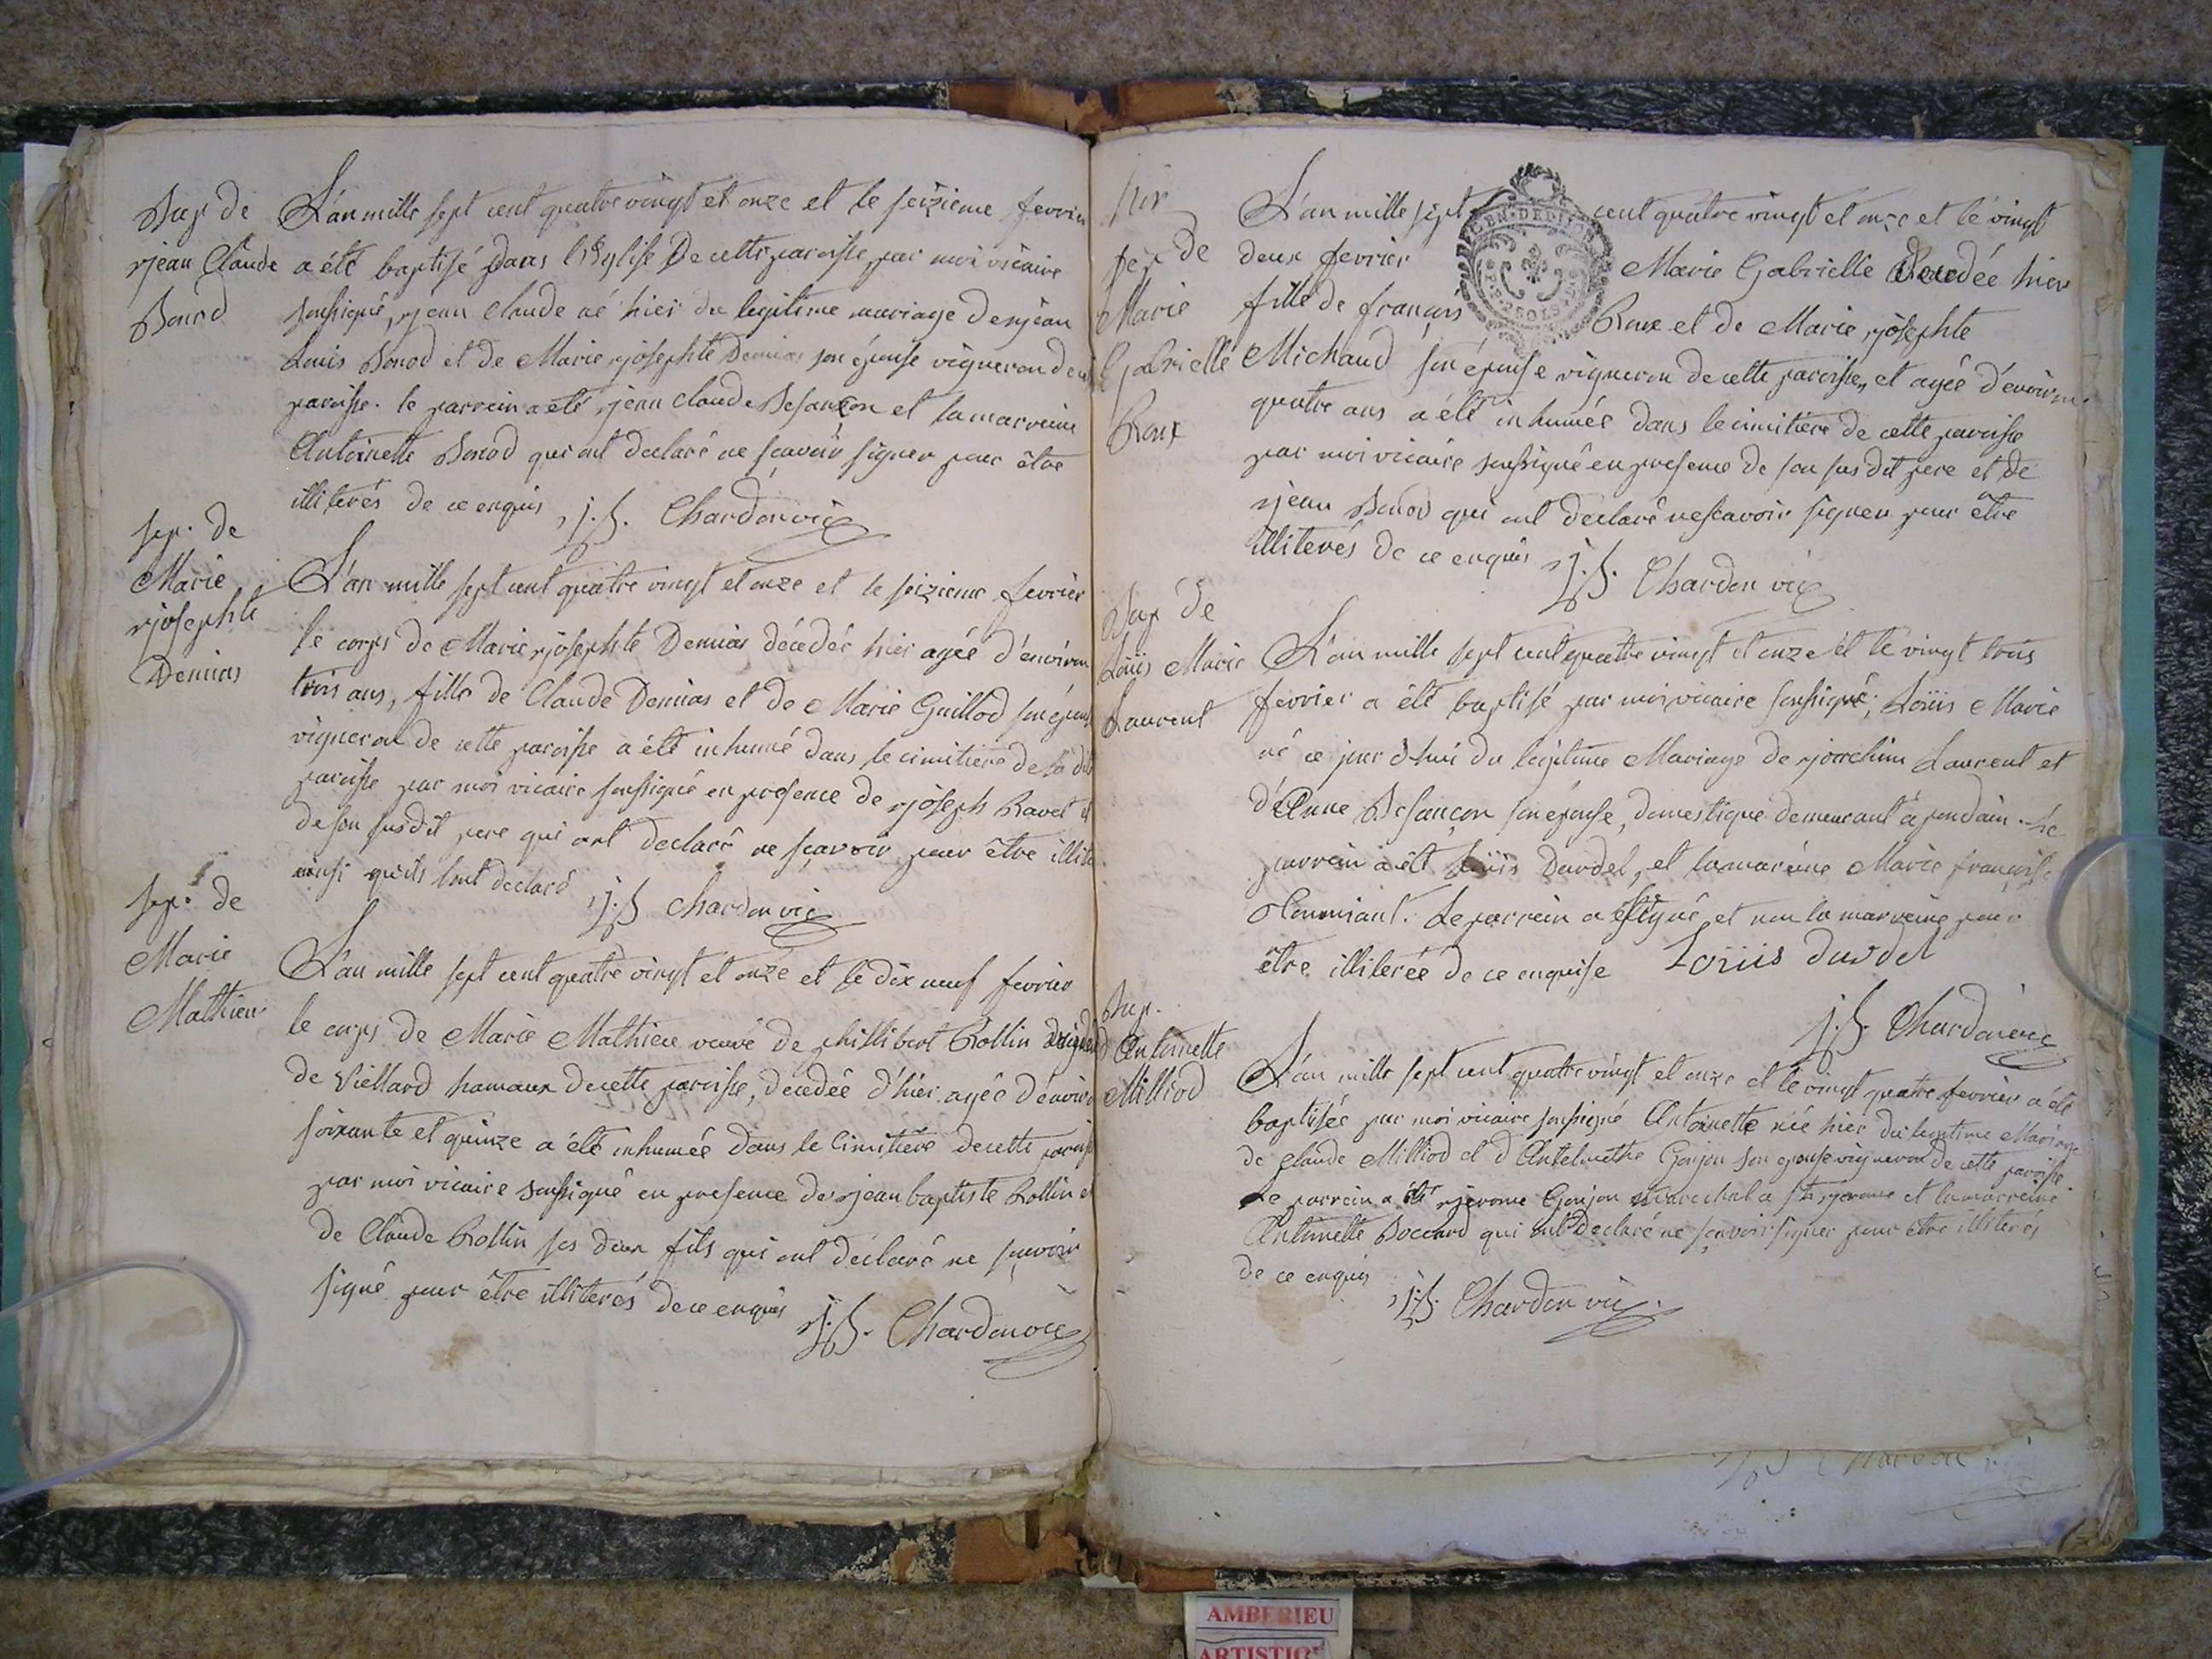 Bap de
jean Claude
Bonod
L'an mille sept cent quatre vingt et onze et le seizieme fevrier
a été baptisé dans l'Eglise De cette paroisse par moi vicaire
soussigné, jean claude né hier du legitime mariage de jean
Louis Bonod et de Marie josephte Demias son épouse vigneron de
paroisse. le parrein a eté jean claude Besançon et la marreine
Antoinette Bonod qui ont declaré ne sçavoir signer pour être
illiterés de ce enquis j.b. Chardon vic
sep. de
Marie
josephte
Demias
L'an mille sept cent quatre vingt et onze et le seizieme fevrier
le corps de Marie josephte Demias décédée hier agée d'environ
trois ans, fille de Claude Demias et de Marie Guillod son épouse
vigneron de cette paroisse a été inhumé dans le cimitiere de la dit
paroisse par moi vicaire soussigné en presence de joseph Ravet et
de son susdit pere qui ont declaré ne sçavoir pour être illite
ainsi qu'ils l'ont declaré j.b chardon vic
sep. de
Marie
Mathieu
L'an mille sept cent quatre vingt et onze et le dix neuf fevrier
le corps de Marie Mathieu veuve de phillibert Rollin
de Viellard hamaux de cette paroisse, decedée d'hier agée d'environ
soixante et quinze a été inhumée dans le Cimitiere de cette paroisse
par moi vicaire soussigné en presence de jean baptiste Rollin et
de Claude Rollin ses deux fils qui ont déclaré ne sçavoir
signé pour être illiterés de ce enquis j.b. Chardon vic
sep de
Marie
Gabrielle
Roux
L'an mille sept cent quatre vingt et onze et le vingt
deux fevrier Marie Gabrielle Decedée hier
fille de françois Roux et de Marie josephte
Michaud son épouse vigneron de cette paroisse, et agée d'environ
quatre ans a été inhumée dans le cimitiere de cette paroisse
par moi vicaire soussigné en presence de son sus dit pere et de
jean Bonod qui ont declaré ne scavoir signer pour être
illiterés de ce enquis j.b. Chardon vic
Bap de
Loüis Marie
Laurent
L'an mille sept cent quatre vingt et onze et le vingt trois
fevrier a été baptisé par moi vicaire soussigné, Loüis Marie
né ce jour d'hui du legitime Mariage de joachim Laurent et
d'Anne Besançon son épouse, domestique demeurant à pondain. le
parrein a été Loüis Dardel, et la mareine Marie françoise
Le parrein a signé et non la marreine pour
être illiterée de ce enquise Loüis dardel
j.b. Chardon vic
Bap.
Antoinette
Milliod
L'an mille sept cent quatre vingt et onze et le vingt quatre fevrier a été
baptisée par moi vicaire soussigné Antoinette née hier du legitime Mariage
de claude Milliod et d'Antelmethe Goujon son epouse vigneron de cette paroisse
Le parrein a été jerome Goujon Marechal a st jerome et la marreine
Antoinette Boccard qui ont Declaré ne sçavoir signer pour être illiterés
de ce enquis j.b. Chardon vic
AMBERIEU
ARTISTIQ